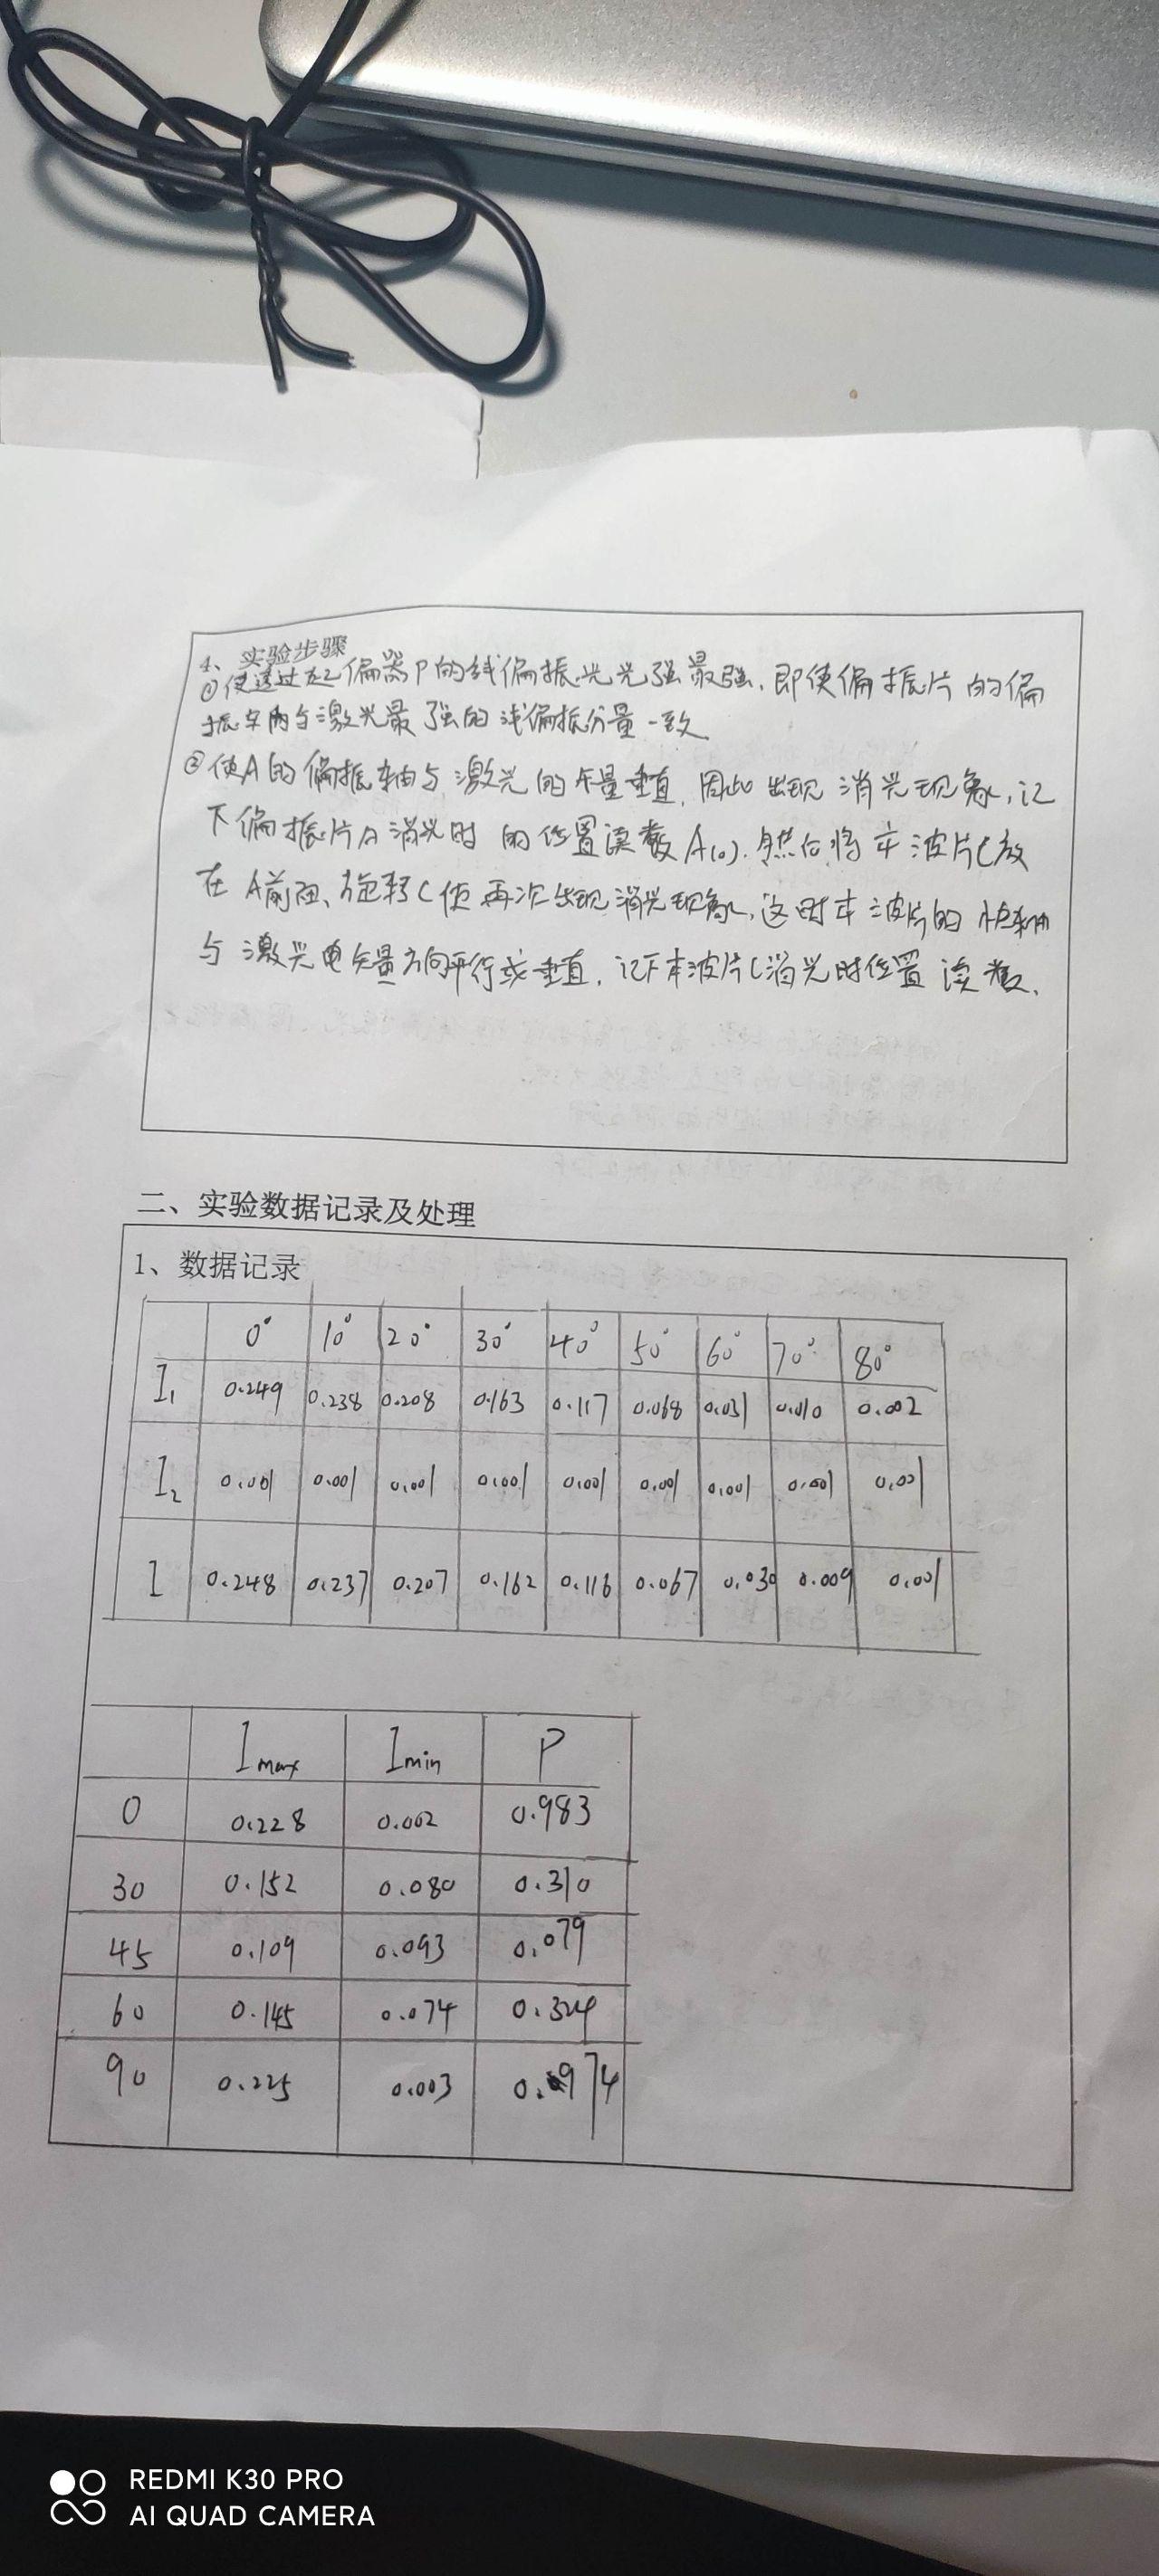 4、实验步骤
①使透过起偏器P的线偏振光光强最强,即使偏振片的偏
振方向与激光最强的线偏振分量一致
②使A的偏振轴与激光的矢量垂直,因此出现消光现象,记
下偏振片A消光时的位置读数A(0).然后将本波片C放
在A前面、旋转C使再次出现消光现象,这时本波片的快轴
与激光电矢量方向平行或垂直,记下本波片C消光时位置读数、
二、实验数据记录及处理
1、数据记录
0° 10° 20° 30° 40° 50° 60° 70° 80°
I₁ 0.249 0.238 0.208 0.163 0.117 0.068 0.031 0.010 0.002
I₂ 0.001 0.001 0.001 0.001 0.001 0.001 0.001 0.001 0.001
I 0.248 0.237 0.207 0.162 0.116 0.067 0.030 0.009 0.001
Imax Imin P
0 0.228 0.002 0.983
30 0.152 0.080 0.310
45 0.109 0.093 0.079
60 0.145 0.074 0.324
90 0.225 0.003 0.974
REDMI K30 PRO
AI QUAD CAMERA